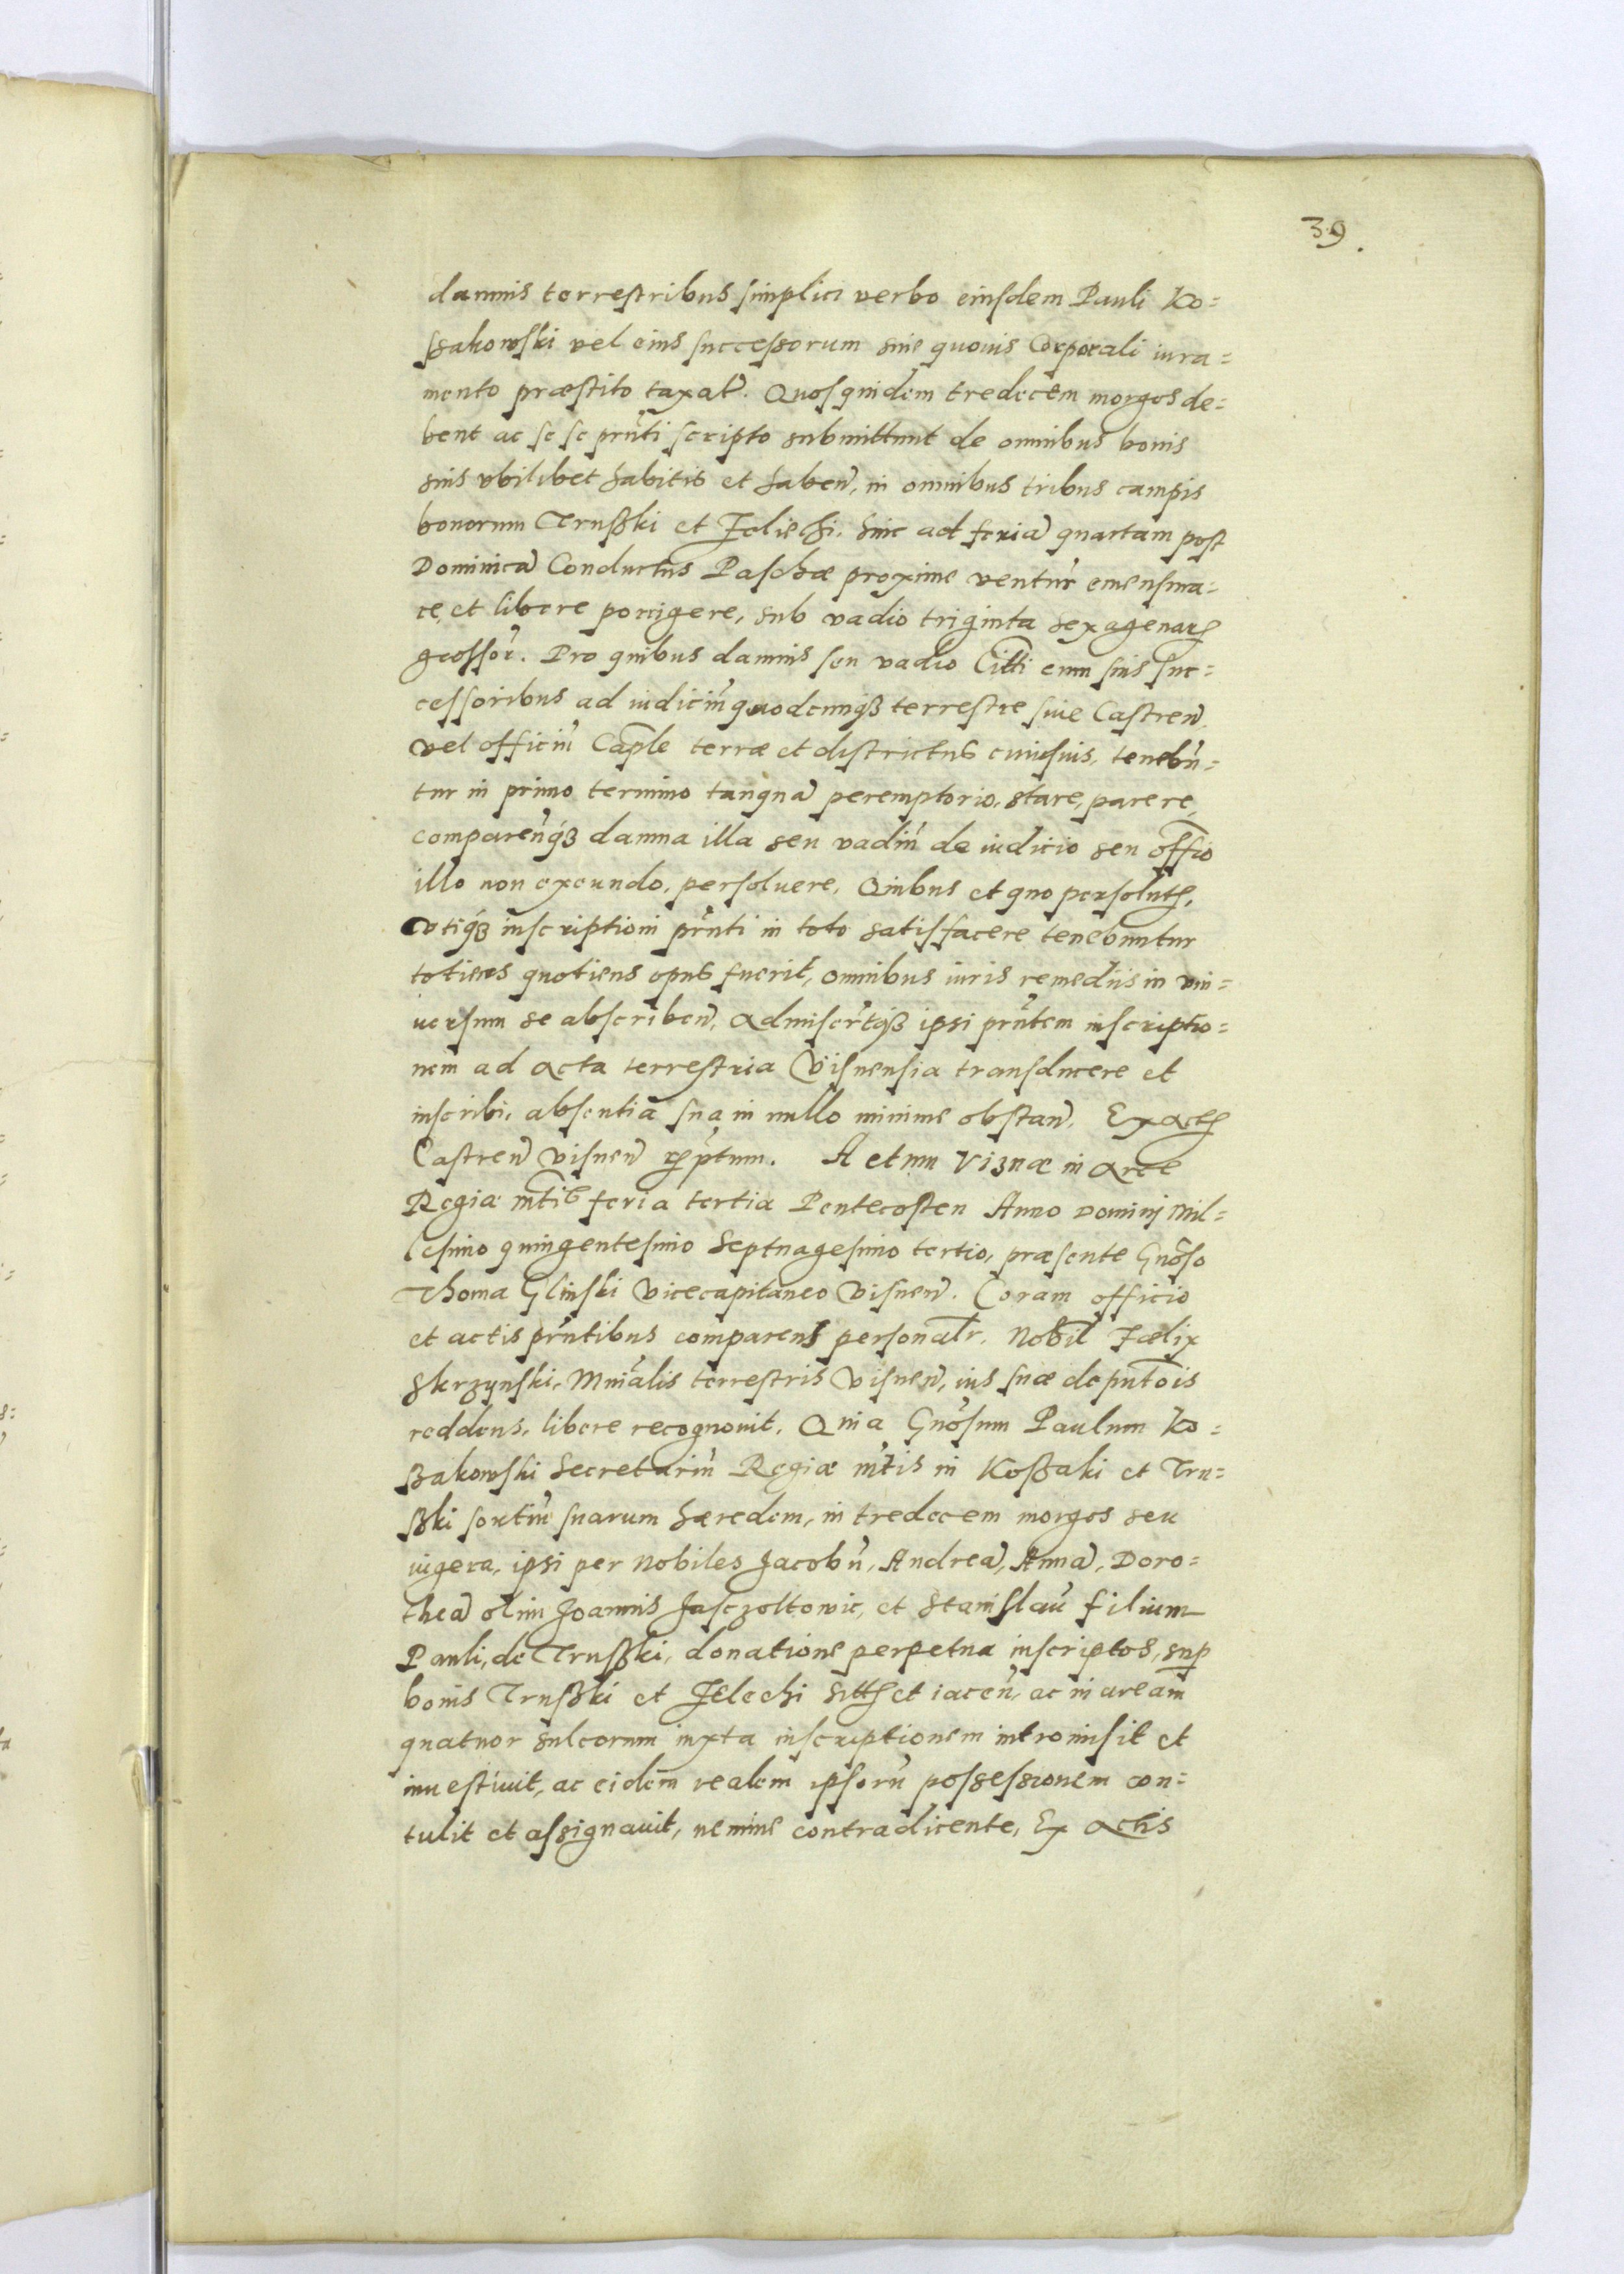 39.
damnis terrestribus simplici verbo eiusdem Pauli Ko=
ssakowski vel eius successorum sine quouis Corporali iura=
mento præstito taxat̃. Quosquidem tredecem morgos de=
bent ac se se prñti scripto submittunt de omnibus bonis
suis vbilibet habitis et haben̄, in omnibus tribus campis
bonorum Trusßki et Jeliechi. hinc ad feriā quartam post
Dominicā Conductus Paschæ proxime ventur̃ emensura=
re, et libere porrigere, sub vadio triginta sexagenarꝭ
grossor̃. Pro quibus damnis seu vadio Citti cum suis suc=
cessoribus ad iudiciū quodcunqꝫ terrestre siue Castren̄.
vel officiū Cap̃le terræ et districtus cuiusuis, tenebū=
tur in primo termino tanquā peremptorio, stare, parere,
comparen̄qꝫ damna illa seu vadiū de iudicio seu offio
illo non exeundo, persoluere, Quibus et quo persolutꝭ,
vtiqꝫ inscriptioni prñti in toto satisfacere tenebuntur
totiens quotiens opus fuerit, omnibus iuris remediis in vni=
uersum se abscriben̄, Admiser̃tqꝫ ipsi prñtem inscriptio=
nem ad acta terrestria Visnensia transducere et
inscribi, absentia sua in nullo minime obstan̄. Ex actꝭ
Castren̄ Visnen̄ rp̃tum. Actum Viznæ in arce
Regiæ mt̃is feria tertia Pentecosten Anno Dominj Mil=
lesimo quingentesimo Septuagesimo tertio, præsente Gnõso
Thoma Glinski Vicecapitaneo Visnen̄. Coram officio
et actis prñtibus comparens personalr̃. Nobil̃ Fœlix
Skrzynski, Mnr̃alis terrestris Visnen̄, ius suæ deputõis
reddens, libere recognouit. Quia Gnõsum Paulum Ko=
ßakowski Secretariū Regiæ mt̃is in Koßaki et Tru=
ßki sortiū suarum hæredem, in tredecem morgos seu
iugera, ipsi per Nobiles Jacobū, Andreā, Annā, Doro=
theā olim Joannis Jasczoltowic, et Stanislaū filium
Pauli, de Trusßki, donatione perpetua inscriptos, sup
bonis Trusßki et Jelechi sittꝭ et iacen̄, ac in aream
quatuor sulcorum iuxta inscriptionem intromisit et
inuestiuit, ac eidem realem ipsorū possessionem con=
tulit et assignauit, nemine contradicente, Ex actis